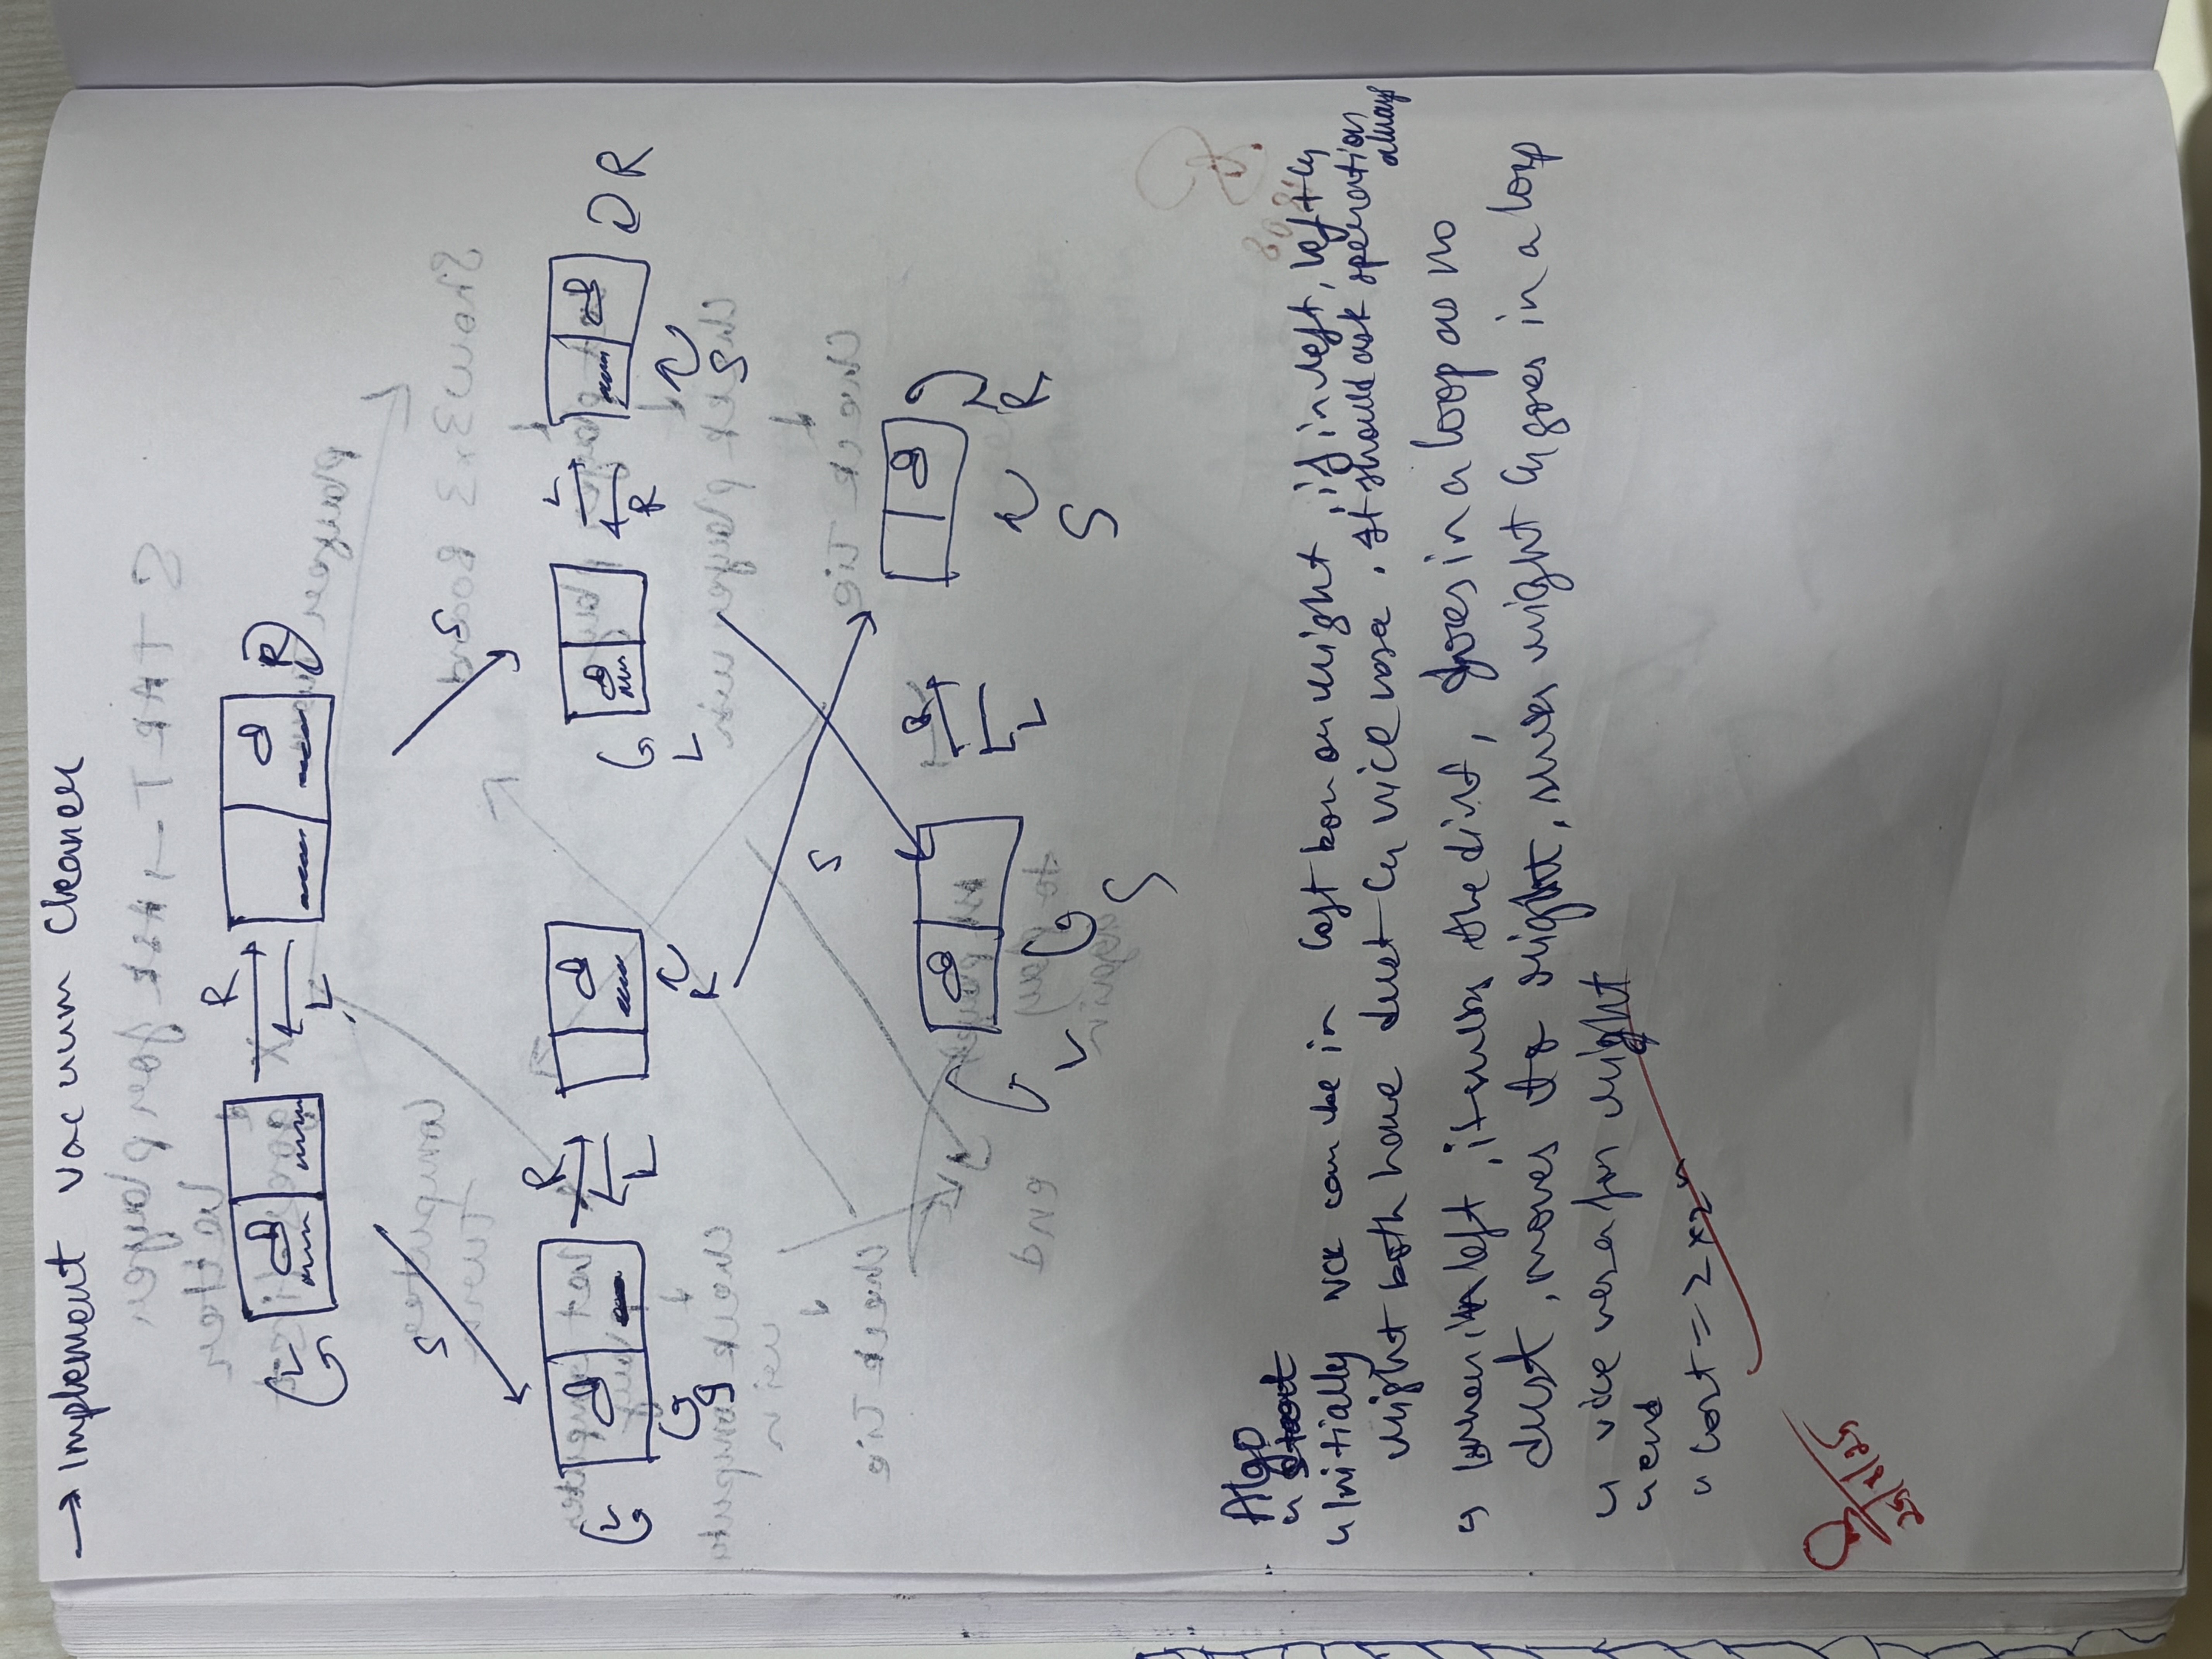 → Implement vacuum cleaner
R
L
R
L
S
S
L
R
L
S
R
L
R
L
R
S
S
L
R
L
R
S
S
Algo
Initially can be in left box or right, if in left, left &
right both have dust & vice versa. It should ask operation
always
When in left, it sucks the dirt, goes in a loop as no
dust, moves to right, sucks right & goes in a loop
vice versa for right
end
Cost = 2 x 2ⁿ
25/8/25